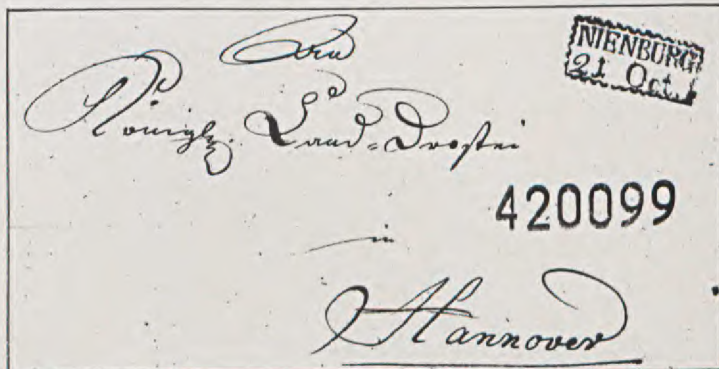 An
NIENBURG
21 Oct
Königl. Land-Drostei
420099
in
Hannover